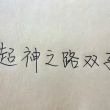 超神之路双